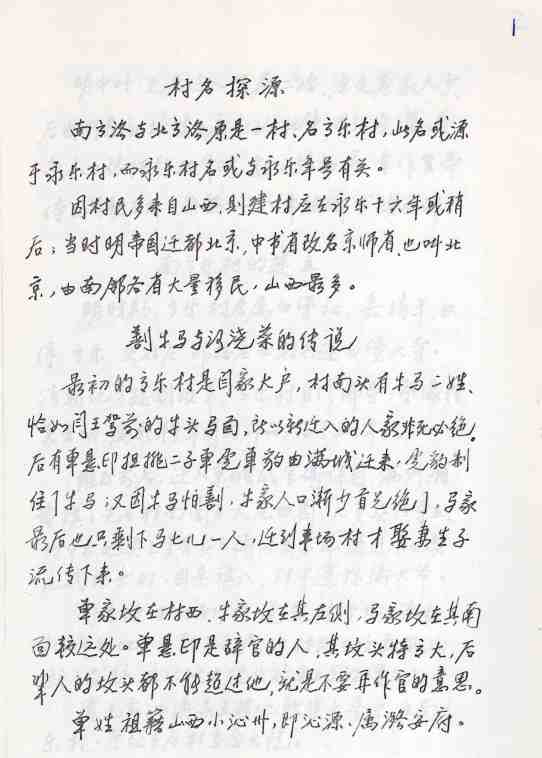 1
村名探源
南高洛与北高洛原是一村、名高乐村，此名或源
于永乐村，而永乐村名或与永乐年号有关。
因村民多来自山西，则建村应在永乐十六年或稍
后；当时明帝国迁都北京，中书省改名京师省，也叫北
京，由南邻各省大量移民，山西最多。
劁牛马与浇菜的传说
最初的高乐村是闫家大户，村南头有牛马二姓、
恰如闫王驾前的牛头马面，所以新迁入的人家非死必绝。
后有单悬印担挑二子单宽单豹由满城迁来，宽豹制
住了牛马；又因牛马怕劁，牛家人口渐少首先绝了，马家
最后也只剩下马七儿一人，迁到车场村才娶妻生子
流传下来。
单家坟在村西，牛家坟在其左侧，马家坟在其南
面较远处。单悬印是辞官的人，其坟头特高大，后
辈人的坟头都不能超过他，就是不要再作官的意思。
单姓祖籍山西小沁州，即沁源，属潞安府。